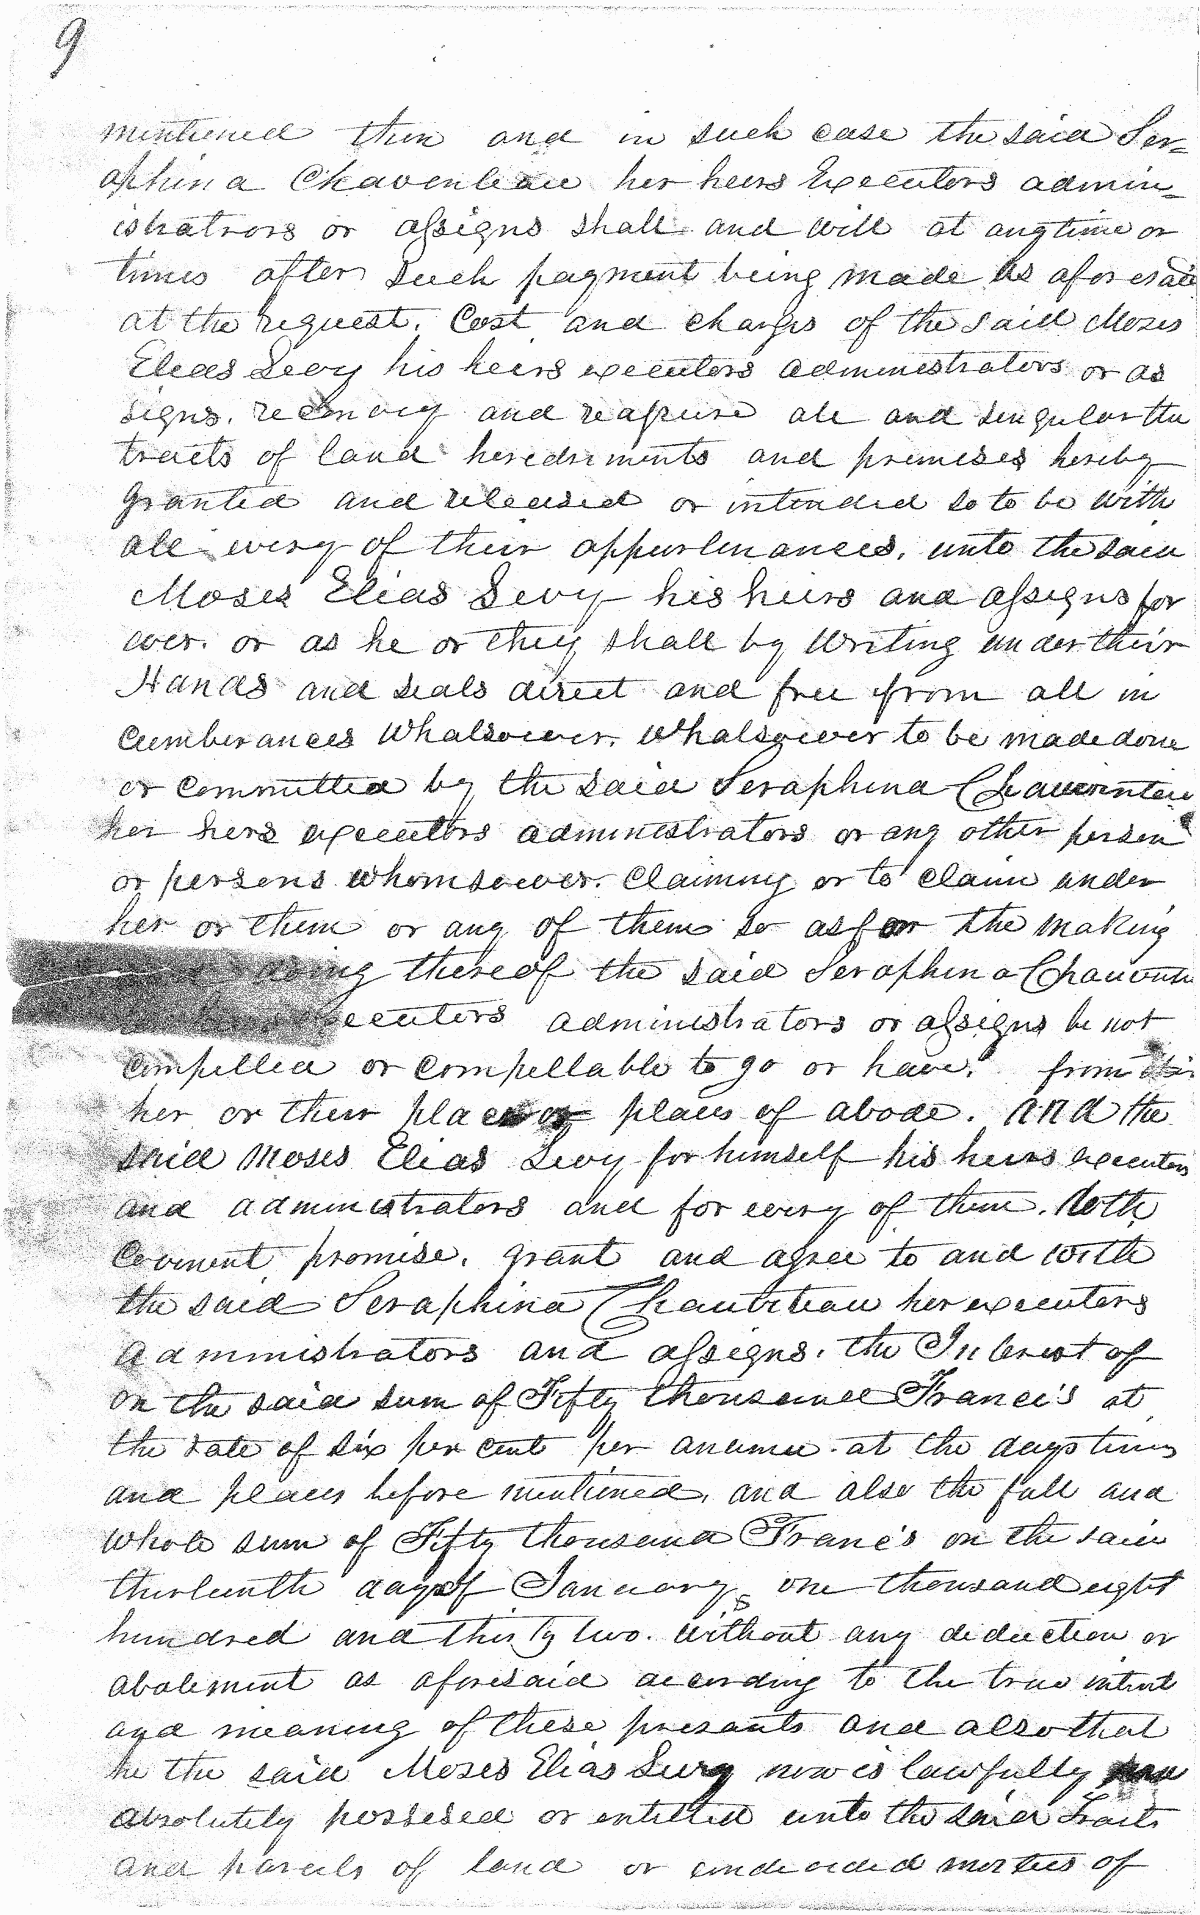 9
mentioned then and in such case the said Ser=
aphina Chavenleau her heirs Executors admin=
istratrors or assigns shall and will at anytime or
times after such payment being made as aforesaid
at the request. Cost and charges of the said Moses
Elias Levy his heirs executors administrators or as
signs. reconvey and reassure all and singular the
tracts of land heredriments and premises hereby
granted and released or intended so to be with
all every of their appurtenances, unto the said
Moses Elias Levy his heirs and assigns for
ever. or as he or they shall by Writing under their
Hands and seals direct and free from all in
cumberances Whatsoever. Whatsoever to be made done
or committed by the said Seraphina
her hers executors administrators or any other person
or persons whomsoever. Claiming or to claim under
her or them or any of them so as for the making
doing thereof the said Seraphina
executors administrators or assigns be not
compelled or compellable to go or have. from
her or their place or places of abode. And the
said Moses Elias Levy for himself his heirs executors
and administrators and for every of them. doth
Covenent promise. grant and agree to and with
the said Seraphina Chauviteau her executors
administrators and assigns. the Interest of
on the said sum of Fifty thousand Franci's at
the rate of six per cent per annum. at the days times
and places before mentioned, and also the full and
Whole sum of Fifty thousand Franc's on the said
thirteenth day of January one thousand eight
hundred and thirty two. Without any deduction or
abatement as aforesaid according to the true intent
and meaning of these presants and also that
he the said Moses Elias Levy now is lawfully
absolutely possesed or entitled unto the said Tracts
and parcels of land or moities of